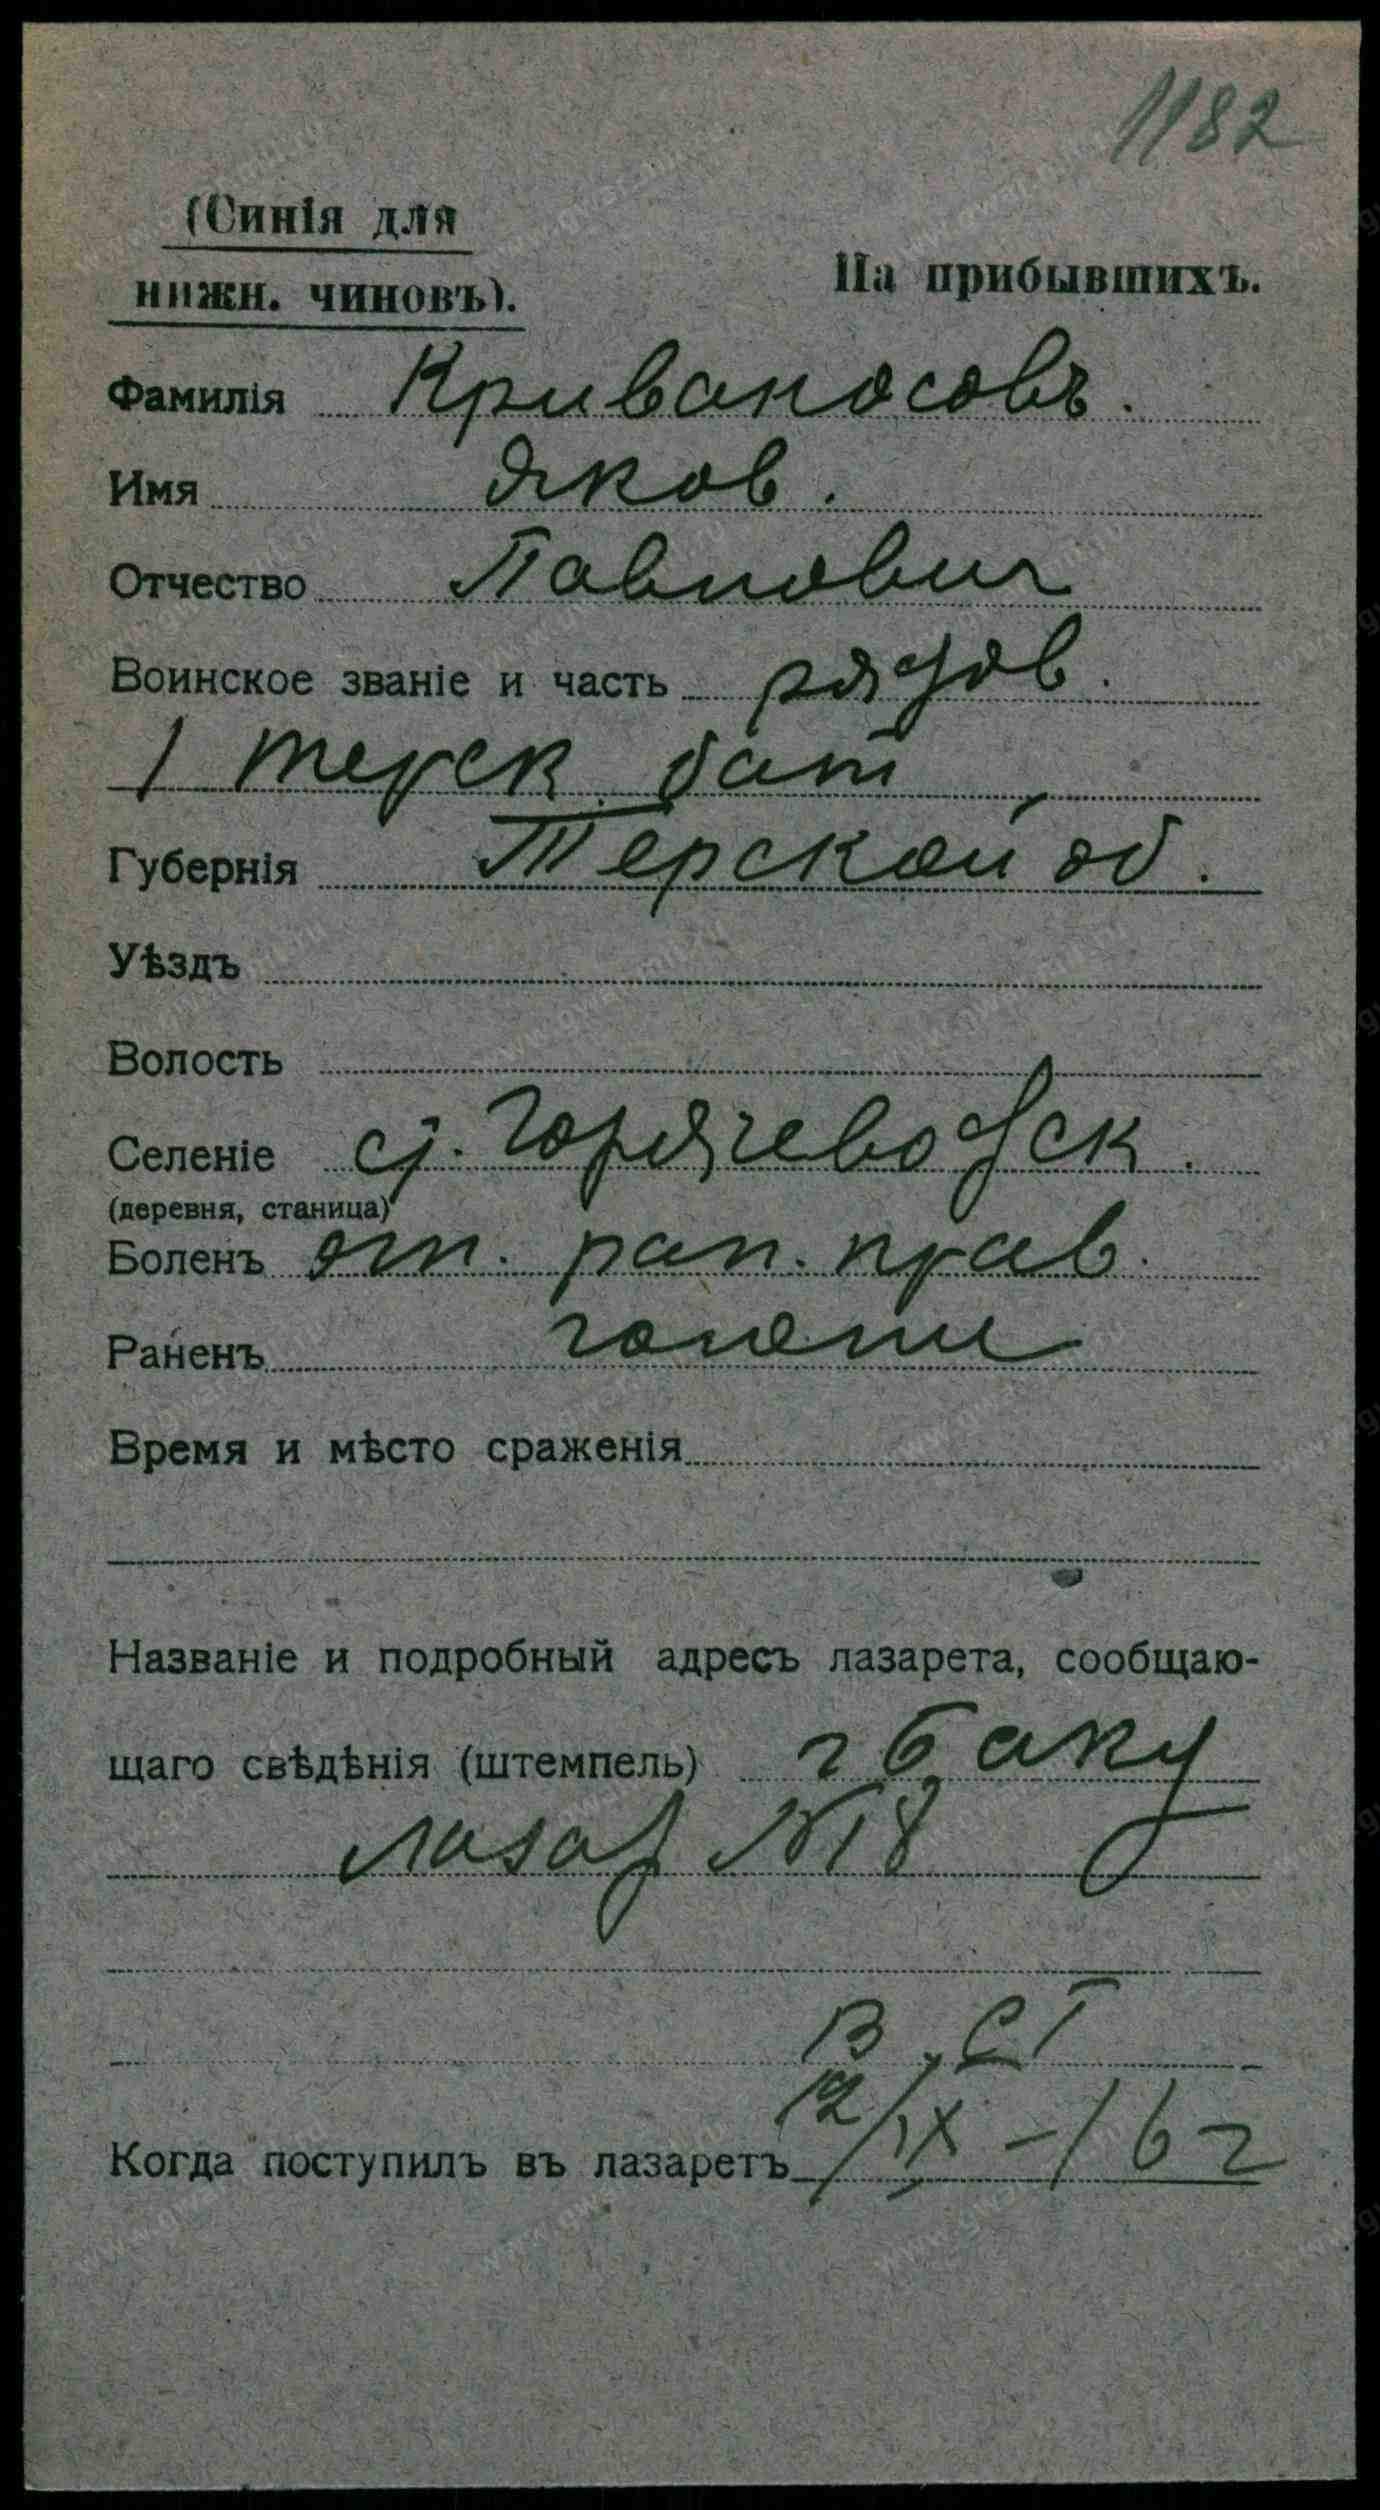 1182
(Синія для
нижн. чиновъ).
На прибывшихъ.
Фамилія Криваносовъ.
Имя Яков.
Отчество Павлович
Воинское званіе и часть рядов.
1 терск. бат
Губернія Терской об.
Уѣздъ
Волость
Селеніе ст. Горячеводск.
(деревня, станица)
Боленъ огн. ран. прав.
Раненъ голени
Время и мѣсто сраженія
Названіе и подробный адресъ лазарета, сообщаю-
щаго свѣдѣнія (штемпель) г Баку
лазар №18
В. СТ
Когда поступилъ въ лазаретъ 12/IX-16 г